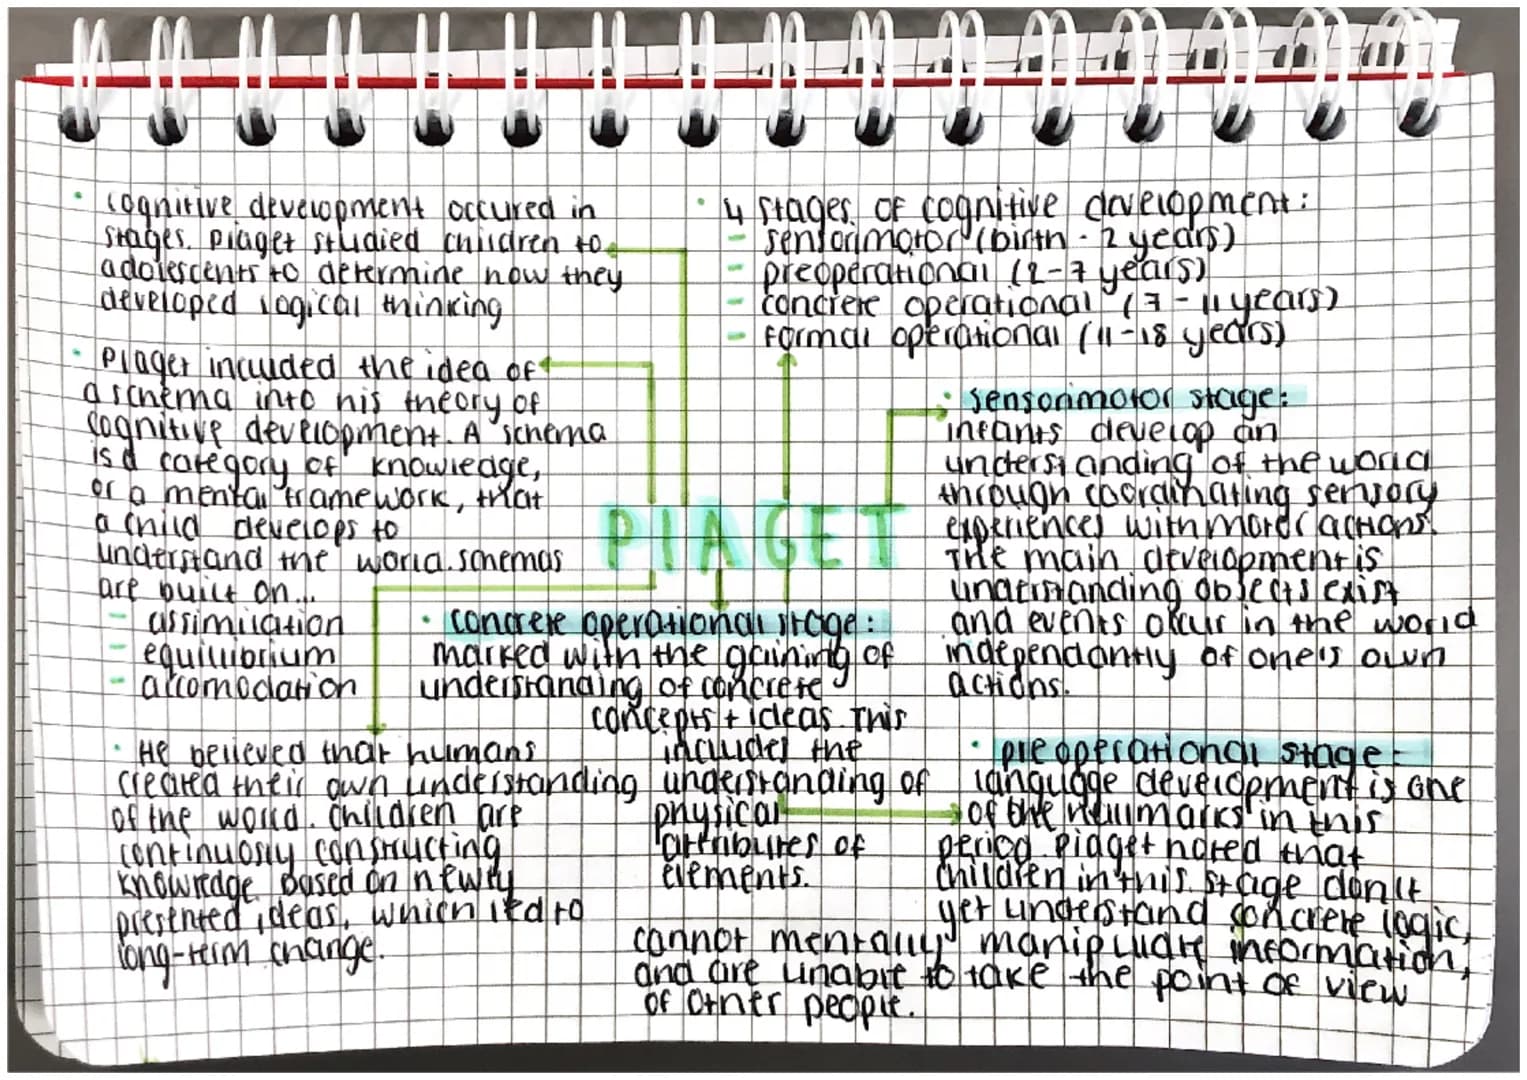 · cognitive development occured in
stages. Piaget studied children to
adolescents to determine how they
developed logical thinking
· Piaget included the idea of
a schema into his theory of
cognitive development. A schema
is a category of knowledge,
or a mental framework, that
a child develops to
understand the world. schemas
are built on...
- assimilation
- equilibrium
- accomodation
· He believed that humans
created their own understanding
of the world. Children are
continuosly constructing
knowledge based on newly
presented ideas, which led to
long-term change.
PIAGET
· concrete operational stage:
marked with the gaining of
understanding of concrete
concepts + ideas. This
includes the
understanding of
physical
attributes of
elements.
· 4 stages of cognitive development:
- sensorimotor (birth - 2 years)
- preoperational (2-7 years)
- concrete operational (7-11 years)
- formal operational (11-18 years)
· sensorimotor stage:
infants develop an
understanding of the world
through coordinating sensory
experiences with motor actions.
The main development is
understanding objects exist
and events occur in the world
independantly of one's own
actions.
· preoperational stage:
language development is one
of the hallmarks in this
period. Piaget noted that
children in this stage don't
yet understand concrete logic,
cannot mentally manipluate information,
and are unable to take the point of view
of other people.